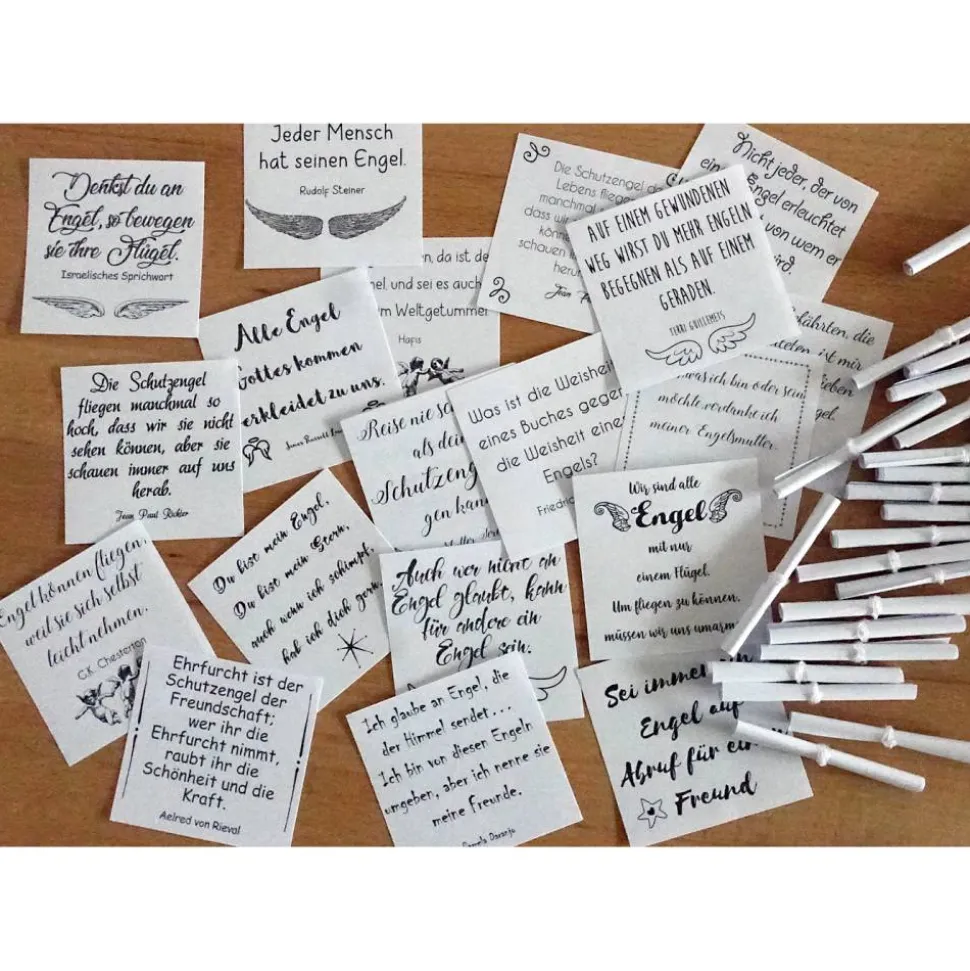 Denkst du an
Engel, so bewegen
sie ihre Flügel.
Israelisches Sprichwort
Jeder Mensch
hat seinen Engel.
Rudolf Steiner
Die Schutzengel
Lebens fliegen
manchmal
dass wir
können
schauen
herun
Jean
AUF EINEM GEWUNDENEN
WEG WIRST DU MEHR ENGELN
BEGEGNEN ALS AUF EINEM
GERADEN.
TERRI GUILLEMETS
Nicht jeder, der von
Engel erleuchtet
von wem er
wird.
da ist de
und sei es auch
m Weltgetümmel
Hafis
Alle Engel
Gottes kommen
verkleidet zu uns.
James Russell
Die Schutzengel
fliegen manchmal so
hoch, dass wir sie nicht
sehen können, aber sie
schauen immer auf uns
herab.
Jean Paul Richter
Reise nie sc
als dein
Schutzeng
gen kan
Was ist die Weisheit
eines Buches gegen
die Weisheit eine
Engels?
Friedric
was ich bin oder sein
möchte, verdankt ich
meiner Engelsmutter.
fährten, die
ist mir
lieben
gel.
Engel können fliegen,
weil sie sich selbst
leicht nehmen.
G.K. Chesterton
Du bist mein Engel,
Du bist mein Stern,
auch wenn ich schimpf,
hab ich dich gern.
Auch wer nicht an
Engel glaubt, kann
für andere ein
Engel sein.
Wir sind alle
Engel
mit nur
einem Flügel.
Um fliegen zu können,
müssen wir uns umarm
Ehrfurcht ist der
Schutzengel der
Freundschaft;
wer ihr die
Ehrfurcht nimmt,
raubt ihr die
Schönheit und die
Kraft.
Aelred von Rieval
Ich glaube an Engel, die
der Himmel sendet...
Ich bin von diesen Engeln
umgeben, aber ich nenne sie
meine Freunde.
Pamela Daranjo
Sei imme
Engel auf
Abruf für ein
Freund